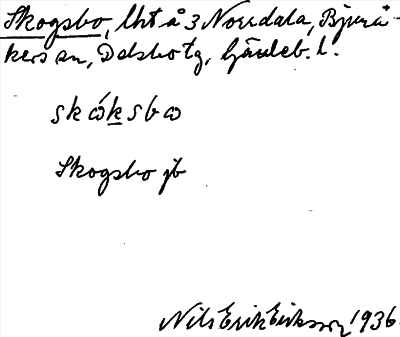 Skogsbo, lht å 3 Norrdala, Bjurå-
kers sn, Delsbo tg, Gävleb. l.
skóksbω
Skogsbo jb
Nils Erik Eriksson 1936.